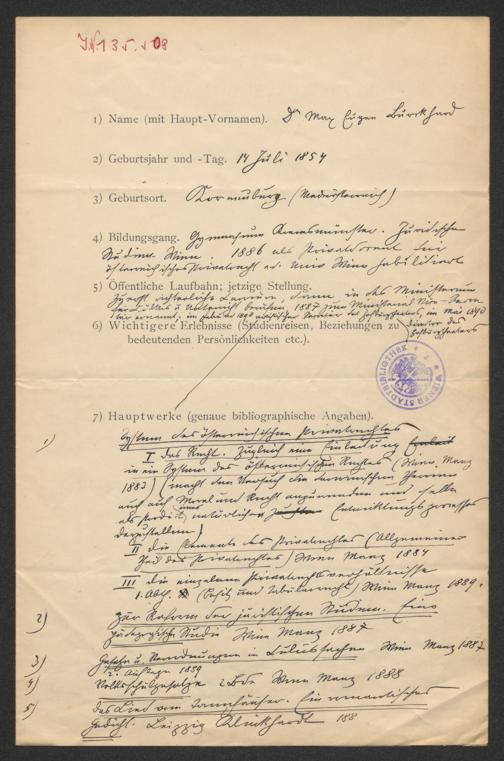 I.N. 135.508
1) Name (mit Haupt-Vornamen). Dr Max Eugen Burckhard
2) Geburtsjahr und -Tag. 14 Juli 1854
3) Geburtsort. Korneuburg (Niederösterreich)
4) Bildungsgang. Gymnasium Kremsmünster. Juridische
Studien Wien. 1886 als Privatdocent für
österreichisches Privatrecht a. d. Univ. Wien habilitiert
5) Öffentliche Laufbahn; jetzige Stellung.
Zuerst richterliche Carriere, dann in das Ministerium
für Cultus u Unterricht berufen 1887 zum Ministerial Vice-Secre-
tär ernannt, im Februar 1890 artistischer Secretär des Hofburgtheaters, im Mai 1890
6) Wichtigere Erlebnisse (Studienreisen, Beziehungen zu Director des
bedeutenden Persönlichkeiten etc.). Hofburgtheaters
WIENER STADTBIBLIOTHEK
7) Hauptwerke (genaue bibliographische Angaben).
1) System des österreichischen Privatrechtes
I Das Recht. Zugleich eine Einleitung
in ein System des österreichischen Rechtes (Wien, Manz
1883) (macht den Versuch die darwinschen Theorien
auch auf Moral und Recht anzuwenden und selbe
als Produkte eines natürlichen Entwicklungsprocesses
darzustellen)
II Die Elemente des Privatrechtes (Allgemeiner
Theil des Privatrechtes) Wien Manz 1884
III Die einzelnen Privatrechtsverhältnisse
1. Abth. (Besitz und Tabularrecht) Wien Manz 1889.
2) Zur Reform der juristischen Studien. Eine
pädagogische Studie Wien Manz 1887
3) Gesetze u. Verordnungen in Cultussachen Wien Manz 1887
2. Auflage 1889
4) Volksschulgesetze 2 Bde Wien Manz 1888
5) Das Lied vom Tannhäuser. Ein romantisches
Gedicht. Leipzig Klinkhardt 188